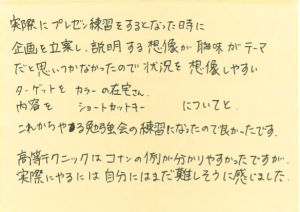 実際にプレゼン練習をするとなった時に
企画を立案し、説明する想像が趣味がテーマ
だと思いつかなかったので状況を想像しやすい
ターゲットを カラーの在宅さん
内容を ショートカットキー についてと、
これからやる勉強会の練習になったので良かったです。
高等テクニックはコナンの例が分かりやすかったですが、
実際にやるには自分にはまだ難しそうに感じました。